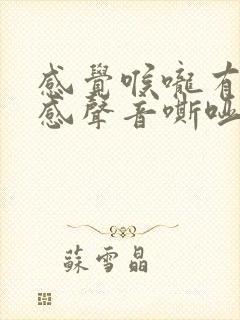 感覺喉嚨有
感聲音嘶啞
蘇雪晶